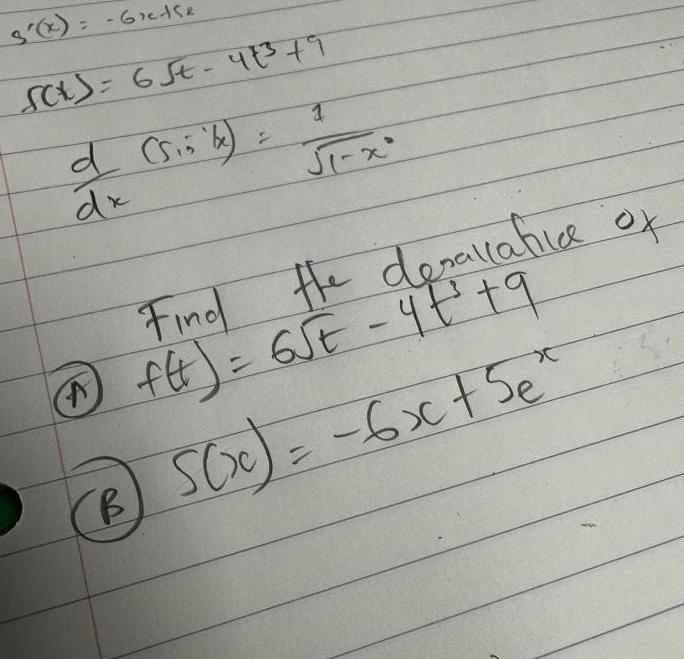 s'(x) = -6x+5e
f(t) = 6√t - 4t³ + 9
d/dx (sin⁻¹x) = 1/√1-x²
Find the deravative of
(A) f(t) = 6√t - 4t³ + 9
(B) S(x) = -6x + 5eˣ